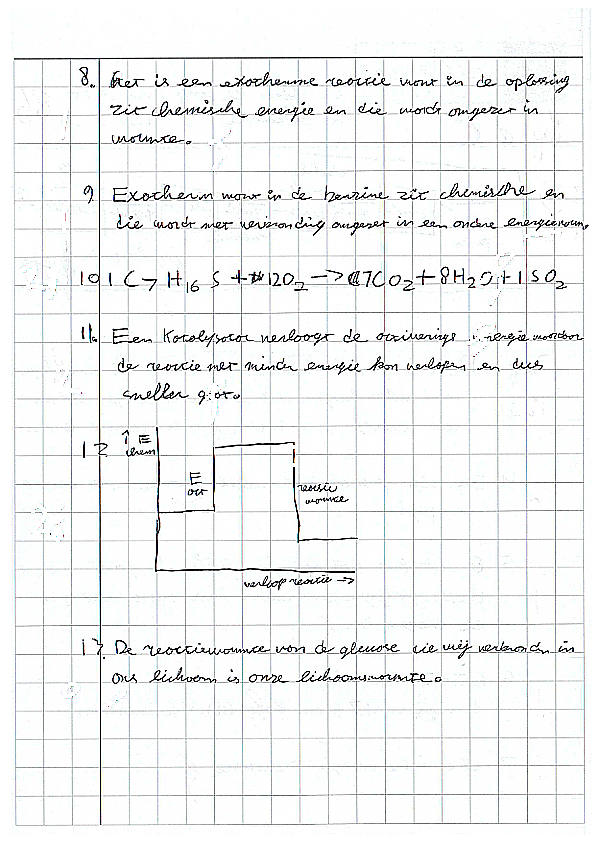 8. Het is een exotherme reactie want in de oplossing
zit chemische energie en die wordt omgezet in
warmte.
9 Exotherm want in de benzine zit chemische en
die wordt met verbranding omgezet in een andere energievorm.
10 1 C7 H16 S + 12O2 -> 7CO2 + 8H2O + 1 SO2
11. Een Katalysator verlaagt de activerings energie waardoor
de reactie met minder energie kan verlopen en dus
sneller gaat.
12 ↑ E
chem
E
act
reactie
warmte
verloop reactie ->
13. De reactiewarmte van de glucose die wij verbranden in
ons lichaam is onze lichaamswarmte.